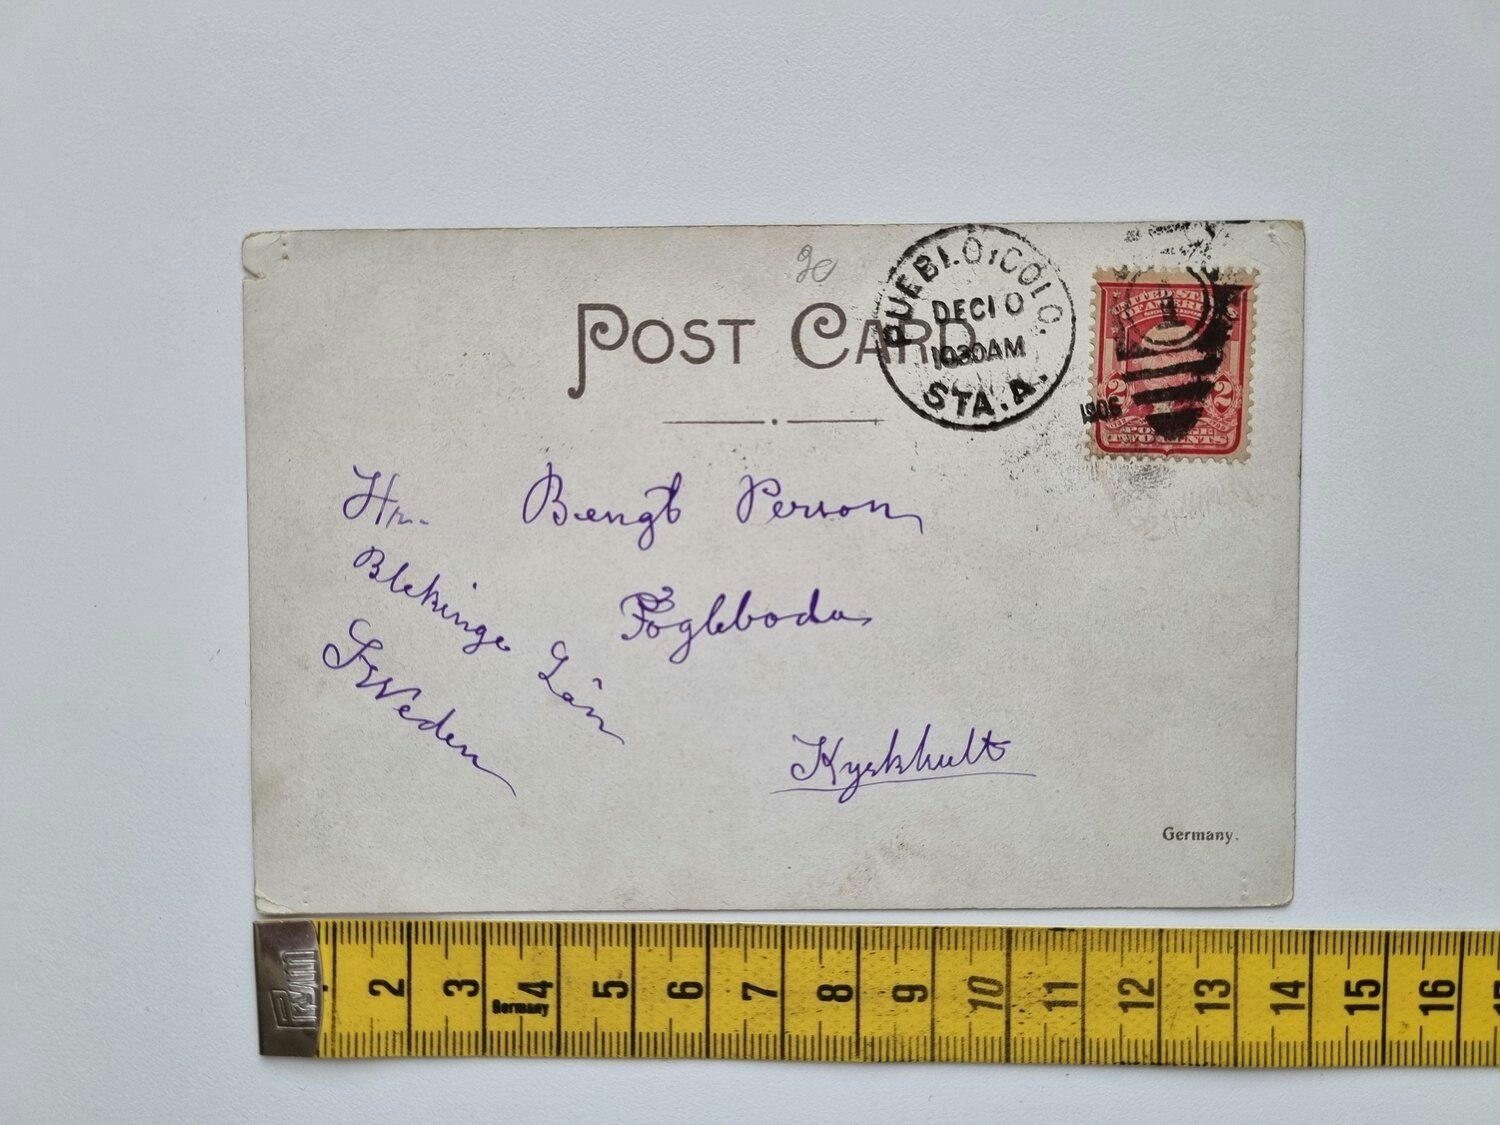 20
POST CARD
PUEBLO, COLO.
DEC 10
10 30 AM
STA. A.
1906
1
UNITED STATES
OF AMERICA
2 2
POSTAGE
TWO CENTS
Hr. Bengt Person
Fögleboda
Blekinge Län
Sweden
Kyrkhult
Germany.
2 3 4 5 6 7 8 9 10 11 12 13 14 15 16
Germany